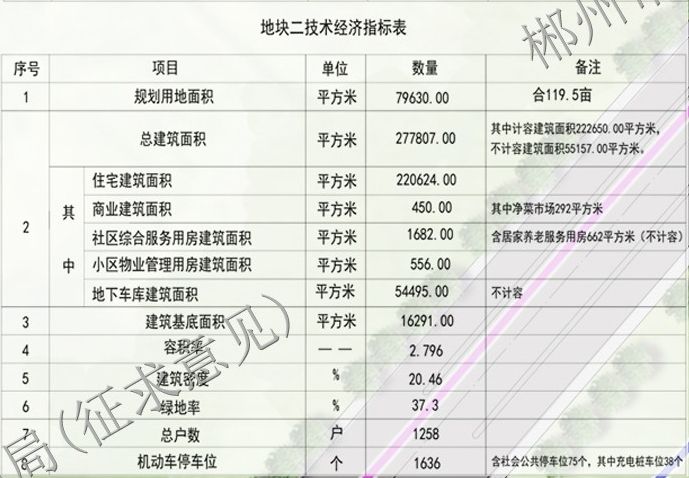 地块二技术经济指标表
序号 项目 单位 数量 备注
1 规划用地面积 平方米 79630.00 合119.5亩
2 总建筑面积 平方米 277807.00 其中计容建筑面积222650.00平方米,
不计容建筑面积55157.00平方米。
其中 住宅建筑面积 平方米 220624.00
商业建筑面积 平方米 450.00 其中净菜市场292平方米
社区综合服务用房建筑面积 平方米 1682.00 含居家养老服务用房662平方米（不计容）
小区物业管理用房建筑面积 平方米 556.00
地下车库建筑面积 平方米 54495.00 不计容
3 建筑基底面积 平方米 16291.00
4 容积率 —— 2.796
5 建筑密度 % 20.46
6 绿地率 % 37.3
7 总户数 户 1258
8 机动车停车位 个 1636 含社会公共停车位75个，其中充电桩车位38个
局(征求意见)
郴州